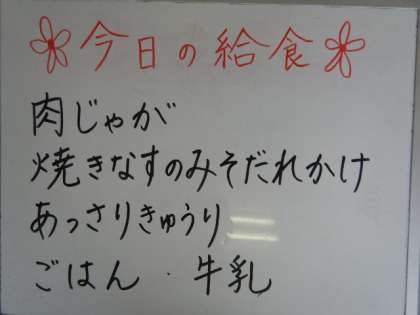 今日の給食
肉じゃが
焼きなすのみそだれかけ
あっさりきゅうり
ごはん・牛乳